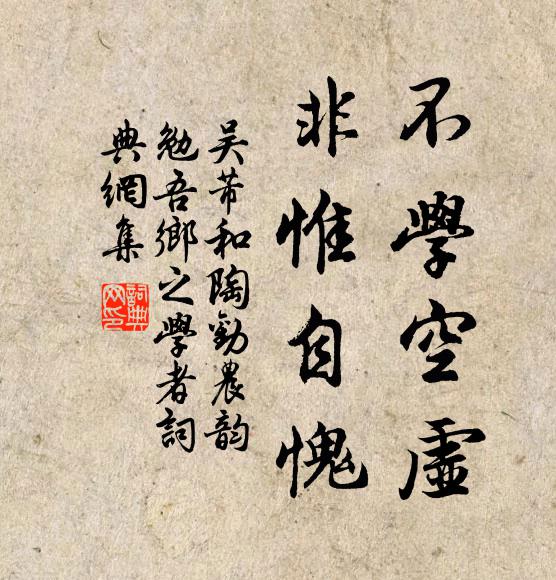 不學空虛
非惟自愧
吳芾和陶勸農韵
勉吾鄉之學者詞
典網集
詞典
网印